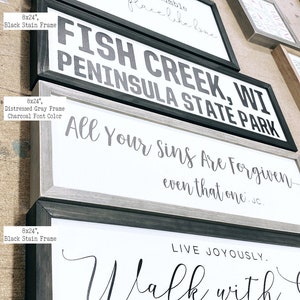 8x24",
Black Stain Frame
FISH CREEK, WI
PENINSULA STATE PARK
8x24",
Distressed Gray Frame
Charcoal Font Color
All Your Sins Are Forgiven
even that one. J.C.
8x24",
Black Stain Frame
LIVE JOYOUSLY.
Walk with